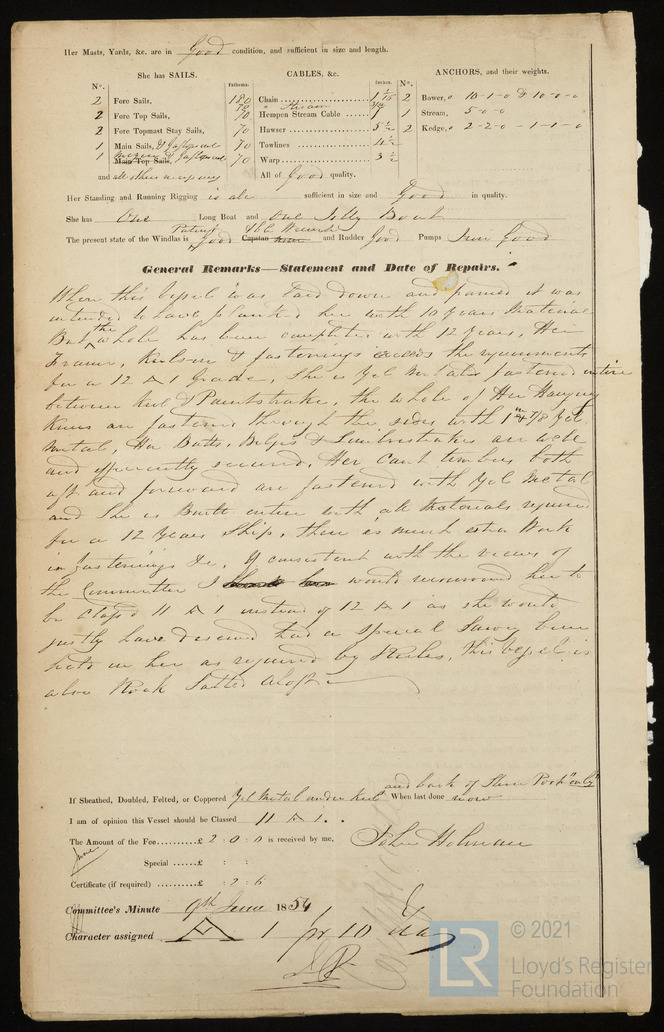 Her Masts, Yards, &c. are in Good condition, and sufficient in size and length.
She has SAILS. CABLES, &c. ANCHORS, and their weights.
N°. Fathoms. Inches. N°.
2 Fore Sails, Chain 180 1 1/16 2 Bower, 10-1-0 & 10-0-0
2 Fore Top Sails, Hempen Stream Cable 70 1 Stream, 5-0-0
2 Fore Topmast Stay Sails, Hawser 70 5 1/2 2 Kedge, 2-2-0 - 1-1-0
1 Main Sails, Towlines 70 4 1/2
1 Main Top Sails, Warp 70 3 1/2
and all others necessary All of Good quality.
Her Standing and Running Rigging is all sufficient in size and Good in quality.
She has One Long Boat and One Jolly Boat
The present state of the Windlas is Patent Good Capstan and Rudder Good Pumps Good
General Remarks—Statement and Date of Repairs.
When this Vessel was laid down and framed it was
intended to have planked her with 10 Years Material
But the whole has been completed with 12 Years, Her
Frame, Kelson & fastenings exceeds the requirements
for a 12 A 1 Grade, She is Yel Metal fastened entire
between Keel & Paintstrake, the whole of Her Hanging
Knees are fastened through the sides with 1 in & 7/8 Yel
Metal, Her Butts, Bilges & Limberstrakes are well
and efficiently secured, Her Cant timbers both
aft and forward are fastened with Yel Metal
and She is Built entire with all Materials required
for a 12 Years Ship, there is much extra Work
in fastenings &c. If consistent with the views of
the Committee I would recommend her to
be Class'd 11 A 1 instead of 12 A 1 as she would
justly have deserved had a Special Survey been
held on her as required by Rules, this Vessel is
also Rock Salted Aloft
and back of Stern Post "only"
If Sheathed, Doubled, Felted, or Coppered Yel Metal under Keel When last done now
I am of opinion this Vessel should be Classed 11 A 1.
The Amount of the Fee......£ 2 : 0 : 0 is received by me, John Holman
Special ......£ : :
Certificate (if required) ..........£ : 2 : 6
Committee's Minute 9th June 1854
Character assigned A 1 for 10
LR © 2021
Lloyd's Register
Foundation